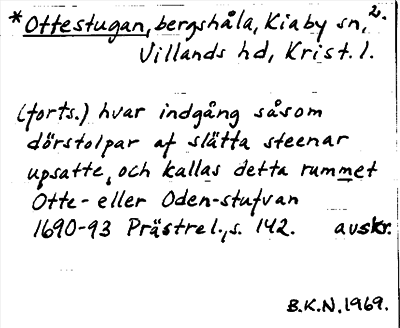 *Ottestugan, bergshåla, Kiaby sn, 2.
Villands hd, Krist. l.
(forts.) hvar indgång såsom
dörstolpar af slätta steenar
upsatte, och kallas detta rummet
Otte- eller Oden-stufvan
1690-93 Prästrel., s. 142. avskr.
B.K.N. 1969.